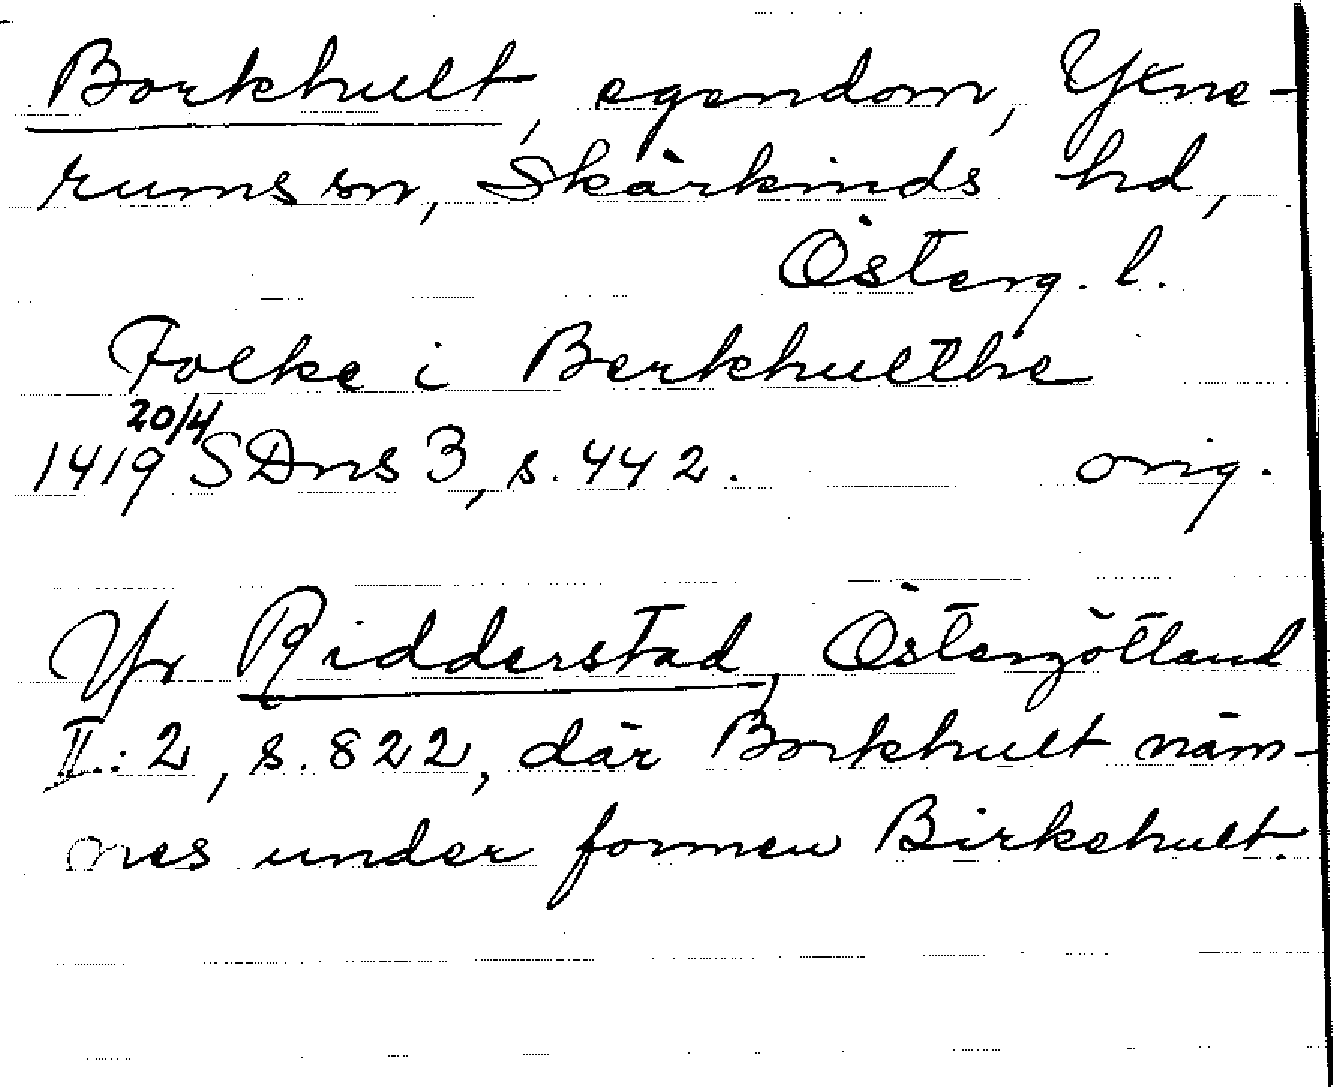 Borkhult, egendom, Yxne-
rums sn, Skärkinds hd,
Österg. l.
Folke i Berkhulthe
20/4
1419 SDns 3, s. 442. orig.
Jfr Ridderstad, Östergötland
II: 2, s. 822, där Borkhult näm-
nes under formen Birkehult.